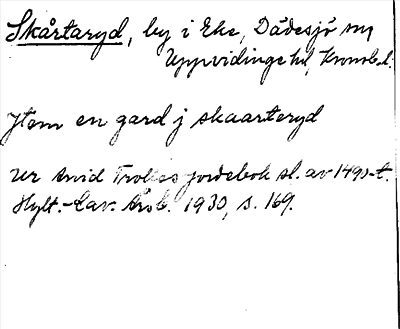 Skårtaryd, by i Eke, Dädesjö sn,
Uppvidinge hd, Kronob. l.
Jtem en gard j skaarteryd
ur Arvid Trolles jordebok sl. av 1490-t.
Hylt.-Cav. Årsb. 1930, s. 169.